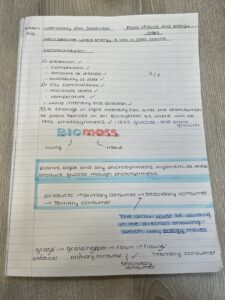 Wednesday 10th September Food chains and energy
loss
LO: Describe where energy is lost in food chains
Connections:
1) • predation ✓
• competition ✓
• amount of disease ✓
• availability of food ✓
2) • CO2 concentration ✓
• moisture levels ✓
• temperature ✓
• wind intensity and direction ✓
3) a change in light intensity can alter the distribution
of plant species in an ecosystem as there will
be less photosynthesis ✓ - less glucose - less plant
growth
3/3
Biomass
living mass
plants, algae and any photosynthesis organism, as these
produce glucose through photosynthesis
producer → primary consumer → secondary consumer
→ tertiary consumer
The arrow must be pointing
in the direction showing
which way energy moves
grass → grasshopper → robin → hawk
producer primary consumer secondary
consumer tertiary consumer